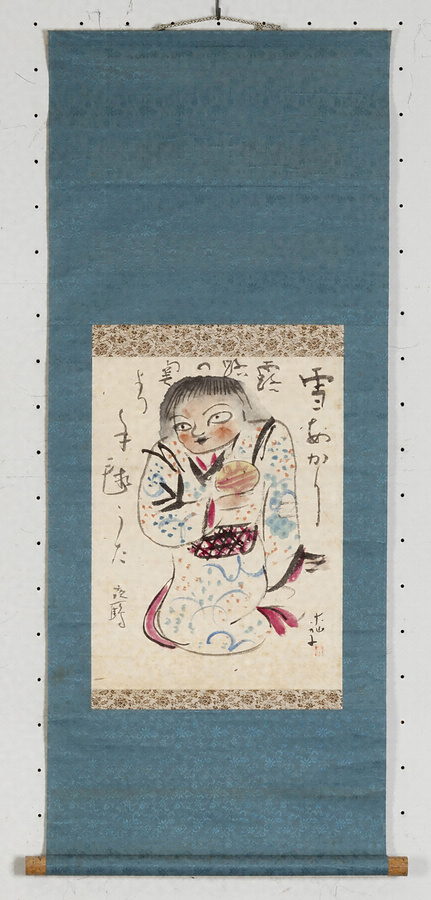 雪あかり
露路の奥
より
手毬うた